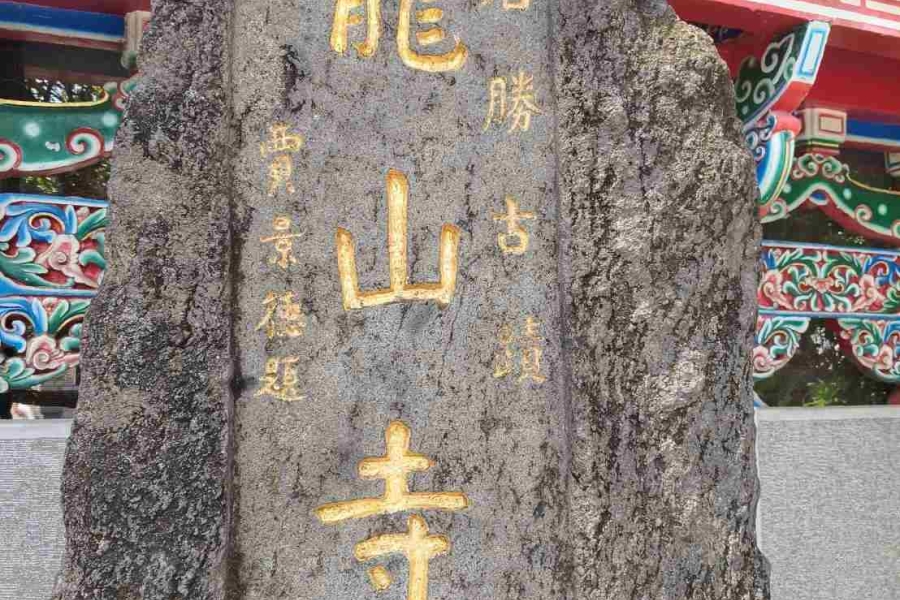 名勝古蹟
龍山寺
賈景德題